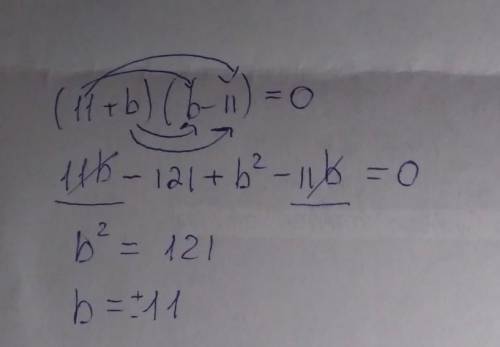 (11+b)(b-11)=0
11b-121+b²-11b=0
b²=121
b=±11